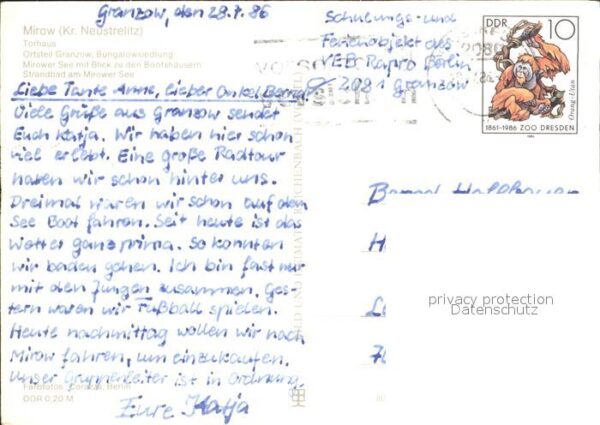 Granzow, den 28.7.86
Mirow (Kr. Neustrelitz)
Torhaus
Ortsteil Granzow, Bungalowsiedlung
Mirower See mit Blick zu den Bootshäusern
Strandbad am Mirower See
Liebe Tante Anne, Lieber Onkel Bernd
Viele Grüße aus Granzow sendet
Euch Katja. Wir haben hier schon
viel erlebt. Eine große Radtour
haben wir schon hinter uns.
Dreimal waren wir schon auf dem
See Boot fahren. Seit heute ist das
Wetter ganz prima. So konnten
wir baden gehen. Ich bin fast nur
mit den Jungen zusammen. Ges-
tern waren wir Fußball spielen.
Heute nachmittag wollen wir nach
Mirow fahren, um einzukaufen.
Unser Gruppenleiter ist in Ordnung.
Eure Katja
Farbfotos: Berlin
DDR 0,20 M
Schulungs- und
Ferienobjekt des
VEB Rapro Berlin
2081 Granzow
DDR 10
Orang-Utan
1861-1986 ZOO DRESDEN
2080
privacy protection
Datenschutz